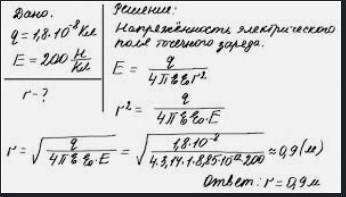 Дано:
q = 1,8·10⁻⁸ Кл
E = 200 Н/Кл
r - ?
Решение:
Напряжённость электрического
поля точечного заряда.
E = q / 4πεε₀r²
r² = q / 4πεε₀·E
r = √(q / 4πεε₀·E) = √(1,8·10⁻⁸ / 4·3,14·1·8,85·10⁻¹²·200) ≈ 0,9 (м)
Ответ: r = 0,9 м